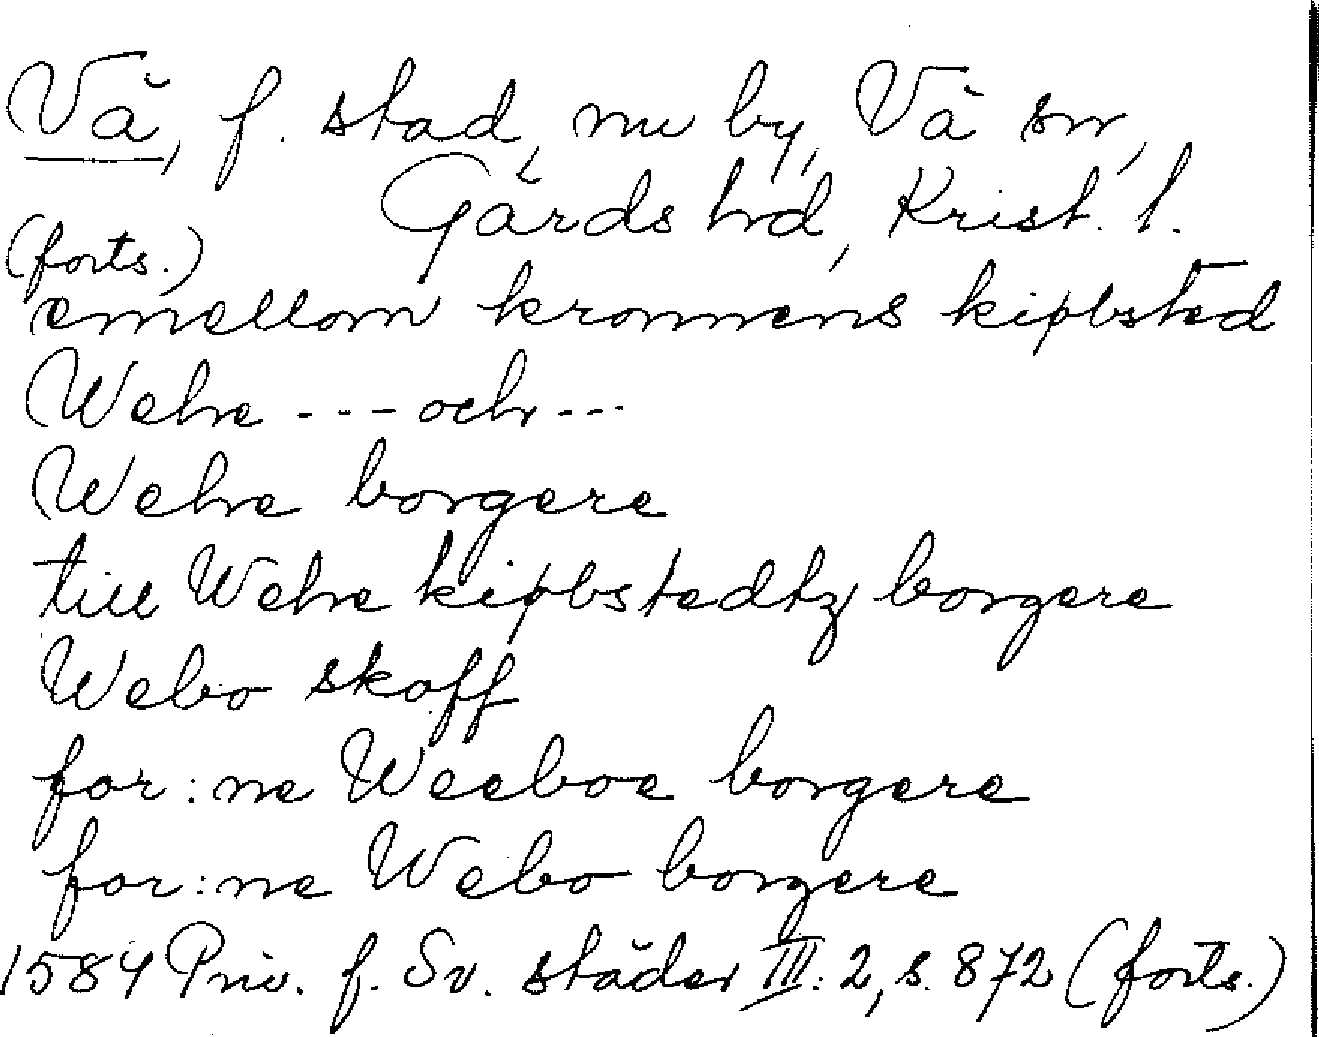 Vä, f. stad, nu by, Vä sn,
Gärds hd, Krist. l.
(forts.)
emellom kronnens kiøbsted
Wehe --- och ---
Wehe borgere
till Wehe kiøbstedtz borgere
Webo skoff
for:ne Weeboe borgere
for:ne Webo borgere
1584 Priv. f. Sv. städer III: 2, s. 872 (forts.)